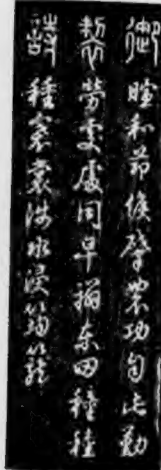 御暄和節候肇農功自此勤
製勞處處同早辨東田穜稑
詩種褰裳涉水浸筠籠